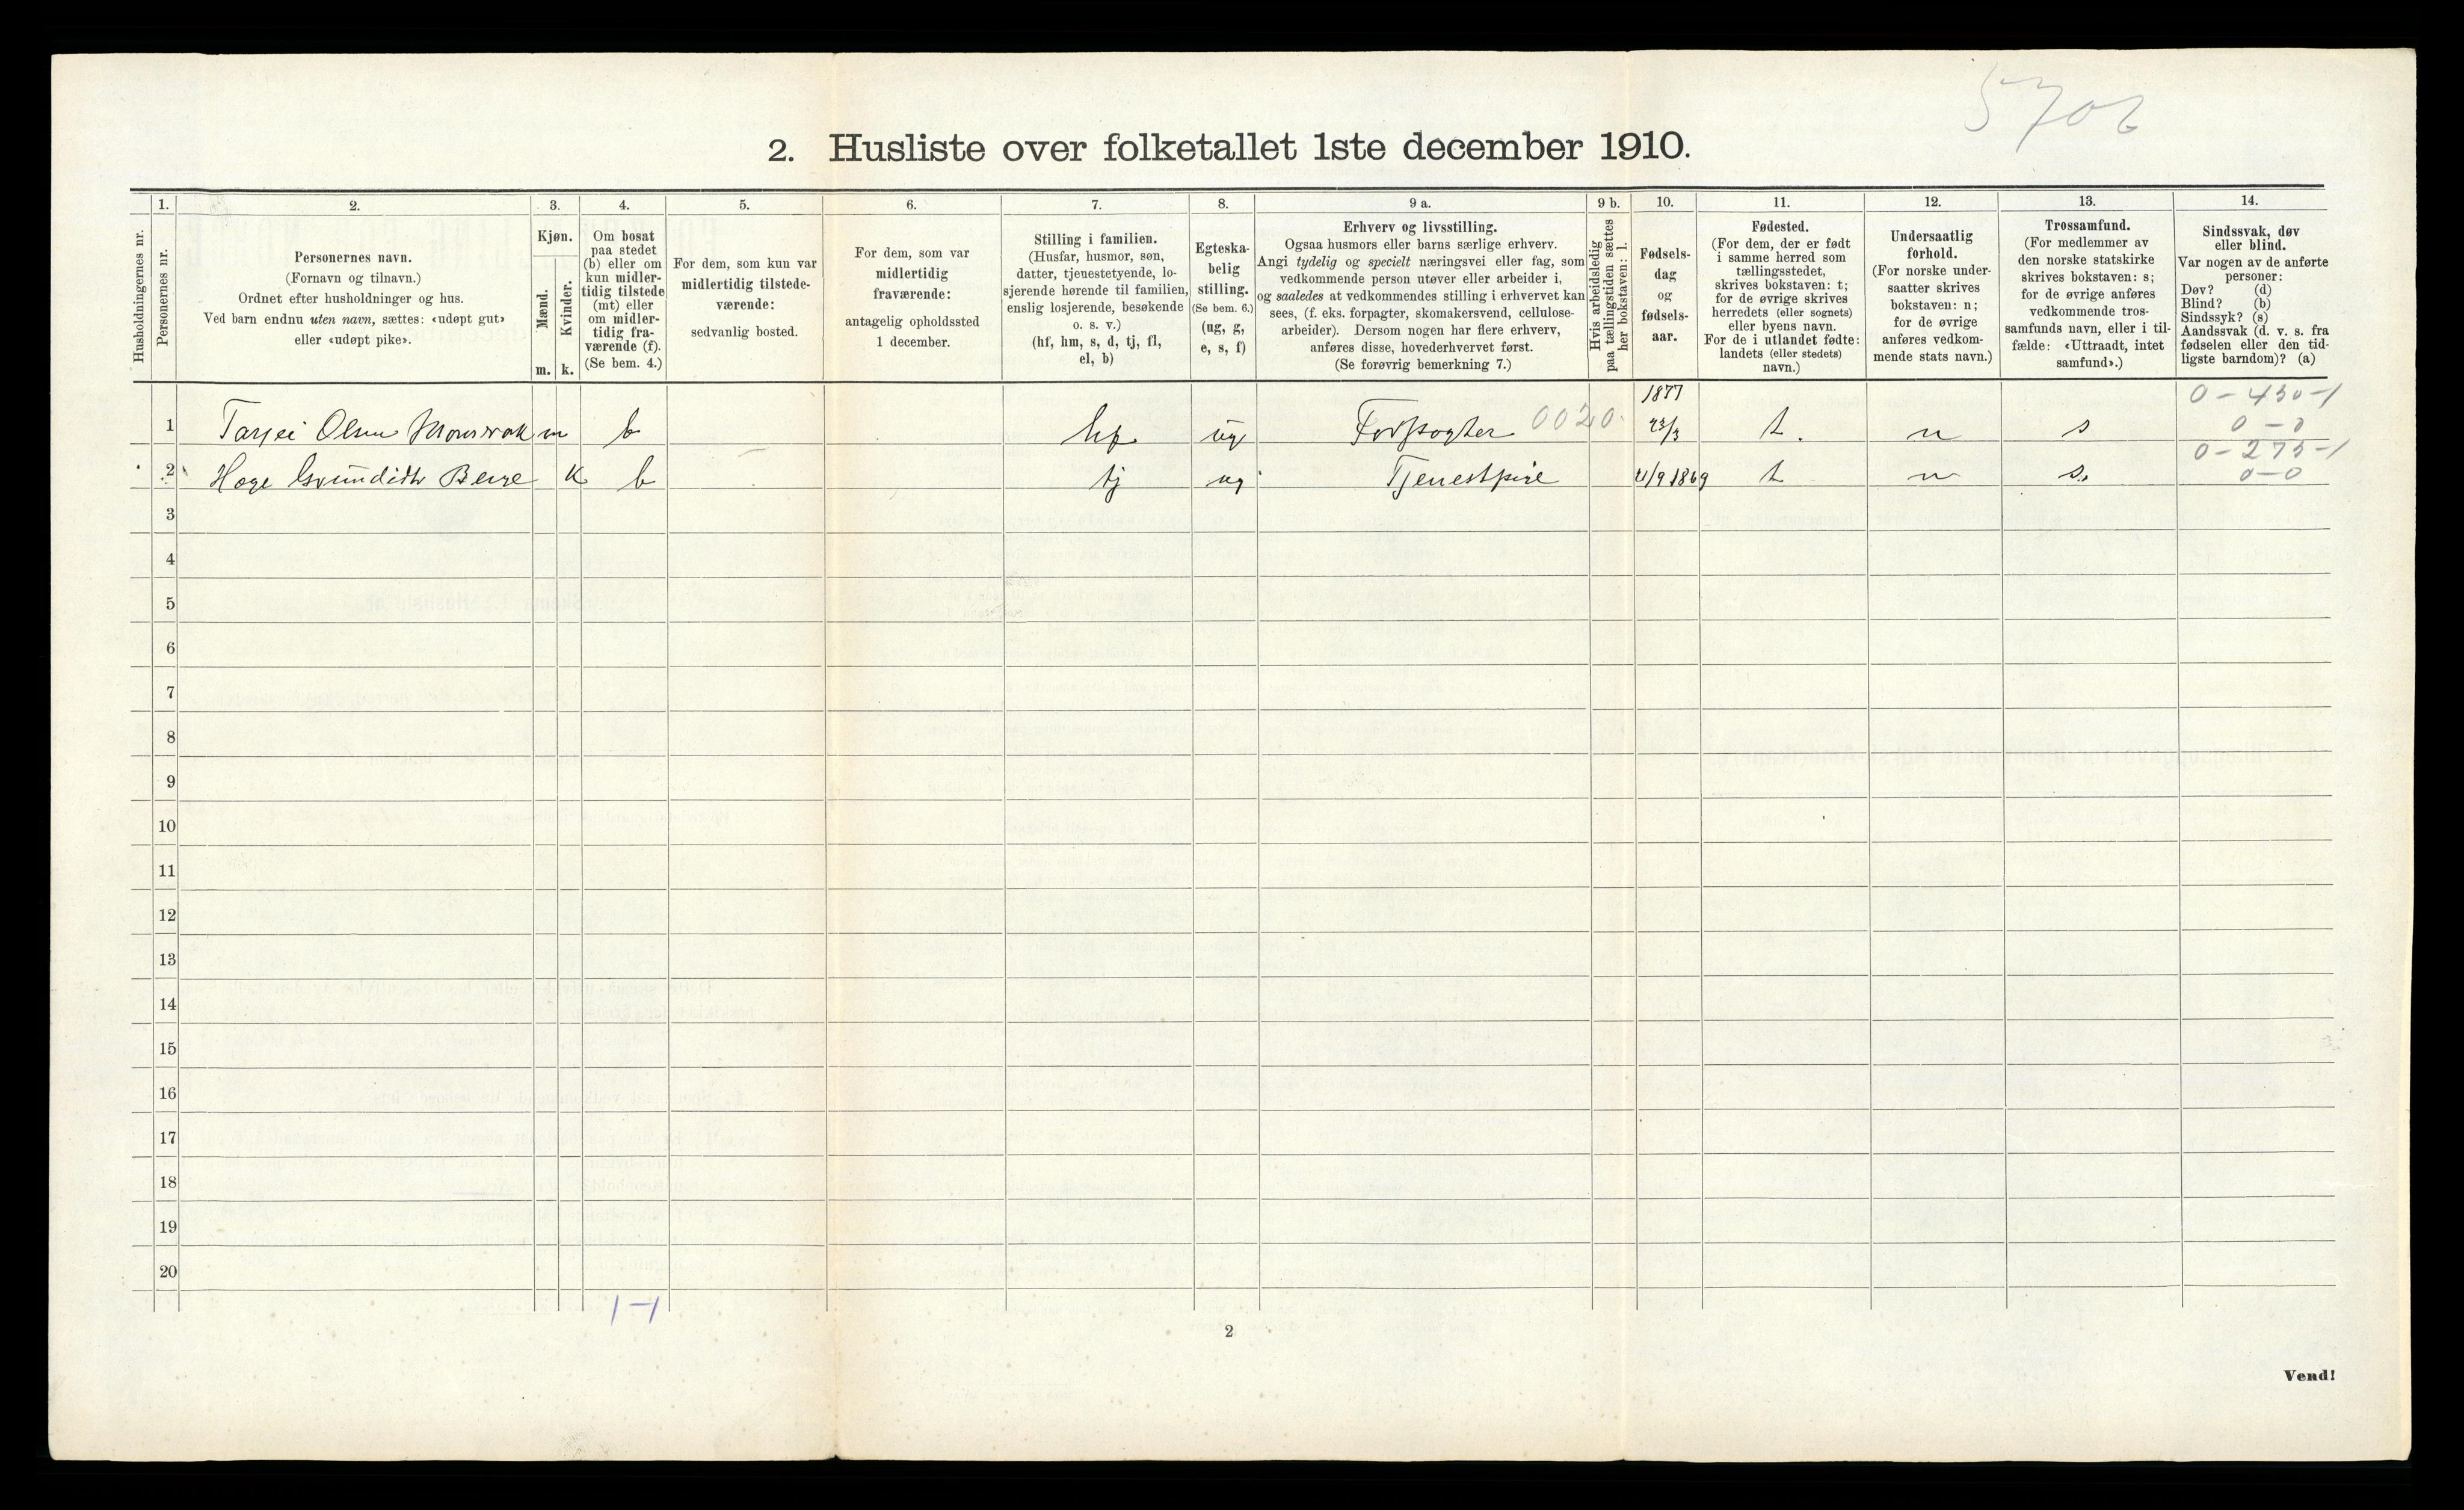 5706
2. Husliste over folketallet 1ste december 1910.
Husholdningernes nr.
1.
Personernes nr.
2.
Personernes navn.
(Fornavn og tilnavn.)
Ordnet efter husholdninger og hus.
Ved barn endnu uten navn, sættes: «udøpt gut»
eller «udøpt pike».
3.
Kjøn.
Mænd.
Kvinder.
m.
k.
4.
Om bosat
paa stedet
(b) eller om
kun midler-
tidig tilstede
(mt) eller
om midler-
tidig fra-
værende (f).
(Se bem. 4.)
5.
For dem, som kun var
midlertidig tilstede-
værende:
sedvanlig bosted.
6.
For dem, som var
midlertidig
fraværende:
antagelig opholdssted
1 december.
7.
Stilling i familien.
(Husfar, husmor, søn,
datter, tjenestetyende, lo-
sjerende hørende til familien,
enslig losjerende, besøkende
o. s. v.)
(hf, hm, s, d, tj, fl,
el, b)
8.
Egteska-
belig
stilling.
(Se bem. 6.)
(ug, g,
e, s, f)
9 a.
Erhverv og livsstilling.
Ogsaa husmors eller barns særlige erhverv.
Angi tydelig og specielt næringsvei eller fag, som
vedkommende person utøver eller arbeider i,
og saaledes at vedkommendes stilling i erhvervet kan
sees, (f. eks. forpagter, skomakersvend, cellulose-
arbeider). Dersom nogen har flere erhverv,
anføres disse, hovederhvervet først.
(Se forøvrig bemerkning 7.)
9 b.
Hvis arbeidsledig
paa tællingstiden sættes
her bokstaven: l.
10.
Fødsels-
dag
og
fødsels-
aar.
11.
Fødested.
(For dem, der er født
i samme herred som
tællingsstedet,
skrives bokstaven: t;
for de øvrige skrives
herredets (eller sognets)
eller byens navn.
For de i utlandet fødte:
landets (eller stedets)
navn.)
12.
Undersaatlig
forhold.
(For norske under-
saatter skrives
bokstaven: n;
for de øvrige
anføres vedkom-
mende stats navn.)
13.
Trossamfund.
(For medlemmer av
den norske statskirke
skrives bokstaven: s;
for de øvrige anføres
vedkommende tros-
samfunds navn, eller i til-
fælde: «Uttraadt, intet
samfund».)
14.
Sindssvak, døv
eller blind.
Var nogen av de anførte
personer:
Døv? (d)
Blind? (b)
Sindssyk? (s)
Aandssvak (d. v. s. fra
fødselen eller den tid-
ligste barndom)? (a)
1877 0-430-1
1 Tarjei Olsen m b hf ug Forpagter 0020 23/3 t. n s 0-0
0-275-1
2 Hæge k b tj ug Tjenestpige 1869 t n s. 0-0
3
4
5
6
7
8
9
10
11
12
13
14
15
16
17
18
19
20
1-1
2
Vend!